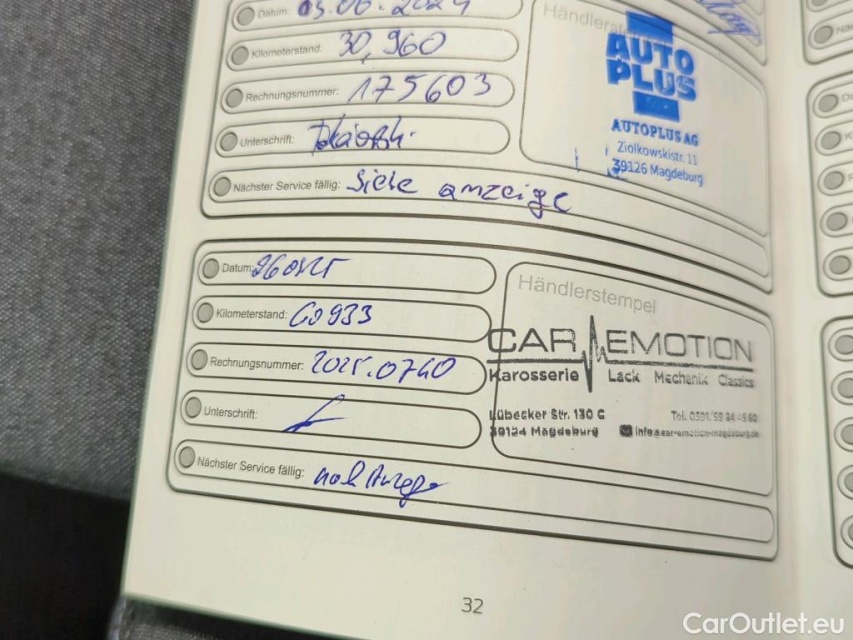 Datum: 03.06.2024
Händlerstempel
Kilometerstand: 30,960
AUTO
PLUS
Rechnungsnummer: 175603
AUTOPLUS AG
Ziolkowskistr. 11
39126 Magdeburg
Unterschrift:
Nächster Service fällig: Siehe anzeige
Datum:
Händlerstempel
Kilometerstand: 60933
CAR EMOTION
Karosserie Lack Mechanik Classics
Rechnungsnummer: 2025.0740
Lübecker Str. 130 C
39124 Magdeburg
info@car-emotion-magdeburg.de
Unterschrift:
Nächster Service fällig: nach Anzeige
32
CarOutlet.eu